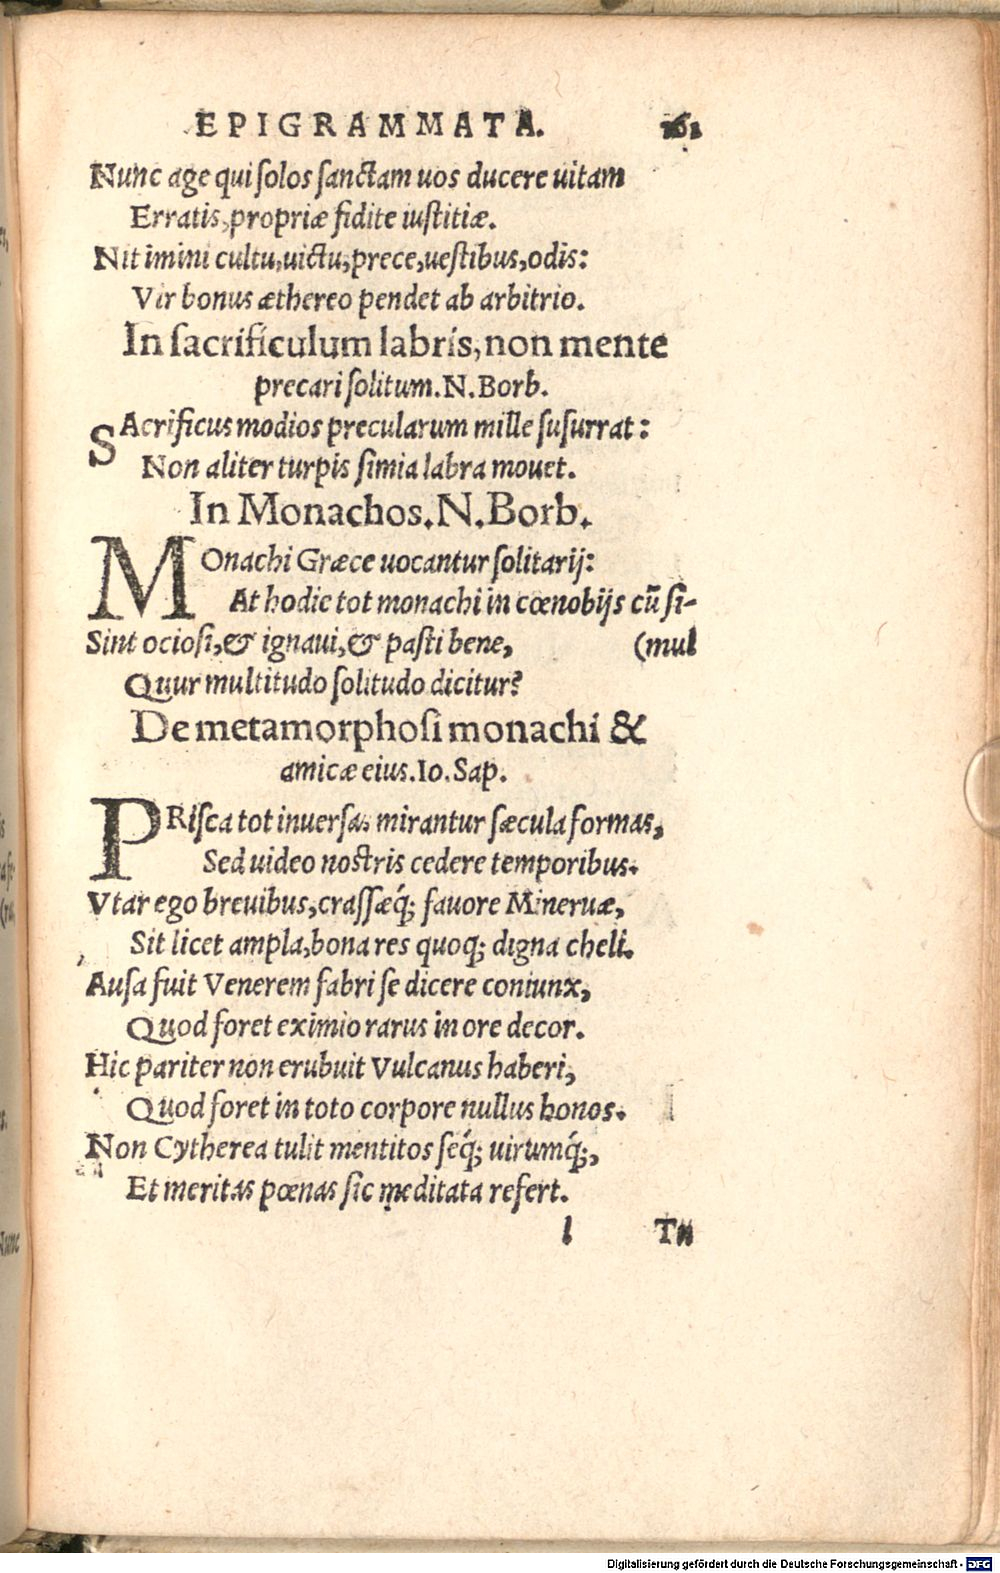 EPIGRAMMATA. 161
Nunc age qui solos sanctam uos ducere uitam
Erratis, propriæ fidite iustitiæ.
Nitimini cultu, uictu, prece, uestibus, odis:
Vir bonus æthereo pendet ab arbitrio.
In sacrificulum labris, non mente
precari solitum. N. Borb.
SAcrificus modios precularum mille susurrat:
Non aliter turpis simia labra mouet.
In Monachos. N. Borb.
MOnachi Græce uocantur solitarij:
At hodie tot monachi in cœnobijs cũ si-
Sint ociosi, & ignaui, & pasti bene, (mul
Quur multitudo solitudo dicitur?
De metamorphosi monachi &
amicæ eius. Io. Sap.
PRisca tot inuersas mirantur sæcula formas,
Sed uideo nostris cedere temporibus.
Vtar ego breuibus, crassæq́; fauore Mineruæ,
Sit licet ampla, bona res quoq; digna cheli.
Ausa fuit Venerem fabri se dicere coniunx,
Quod foret eximio rarus in ore decor.
Hic pariter non erubuit Vulcanus haberi,
Quod foret in toto corpore nullus honos.
Non Cytherea tulit mentitos seq́; uirumq́;,
Et meritas pœnas sic meditata refert.
l
Digitalisierung gefördert durch die Deutsche Forschungsgemeinschaft - DFG